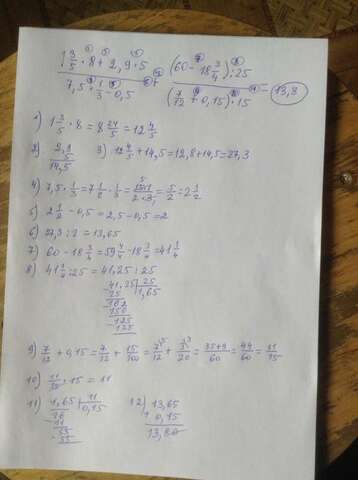 1 3/5 · 8 + 2,9 · 5 / 7,5 · 1/3 - 0,5 + (60 - 18 3/4) : 25 / (7/12 + 0,15) · 15 = 13,8
1) 1 3/5 · 8 = 8 24/5 = 12 4/5
2) 2,9 5 14,5 3) 12 4/5 + 14,5 = 12,8 + 14,5 = 27,3
4) 7,5 · 1/3 = 7 1/2 · 1/3 = 5/2 = 2 1/2
5) 2 1/2 - 0,5 = 2,5 - 0,5 = 2
6) 27,3 : 2 = 13,65
7) 60 - 18 3/4 = 59 4/4 - 18 3/4 = 41 1/4
8) 41 1/4 : 25 = 41,25 : 25
41,25 | 25
25 1,65
162
150
125
125
9) 7/12 + 0,15 = 7/12 + 15/100 = 7/12 + 3/20 = 35+9/60 = 44/60 = 11/15
10) 11/15 · 15 = 11
11) 1,65 | 11 12) 13,65
0,15 + 0,15
55 13,80
55